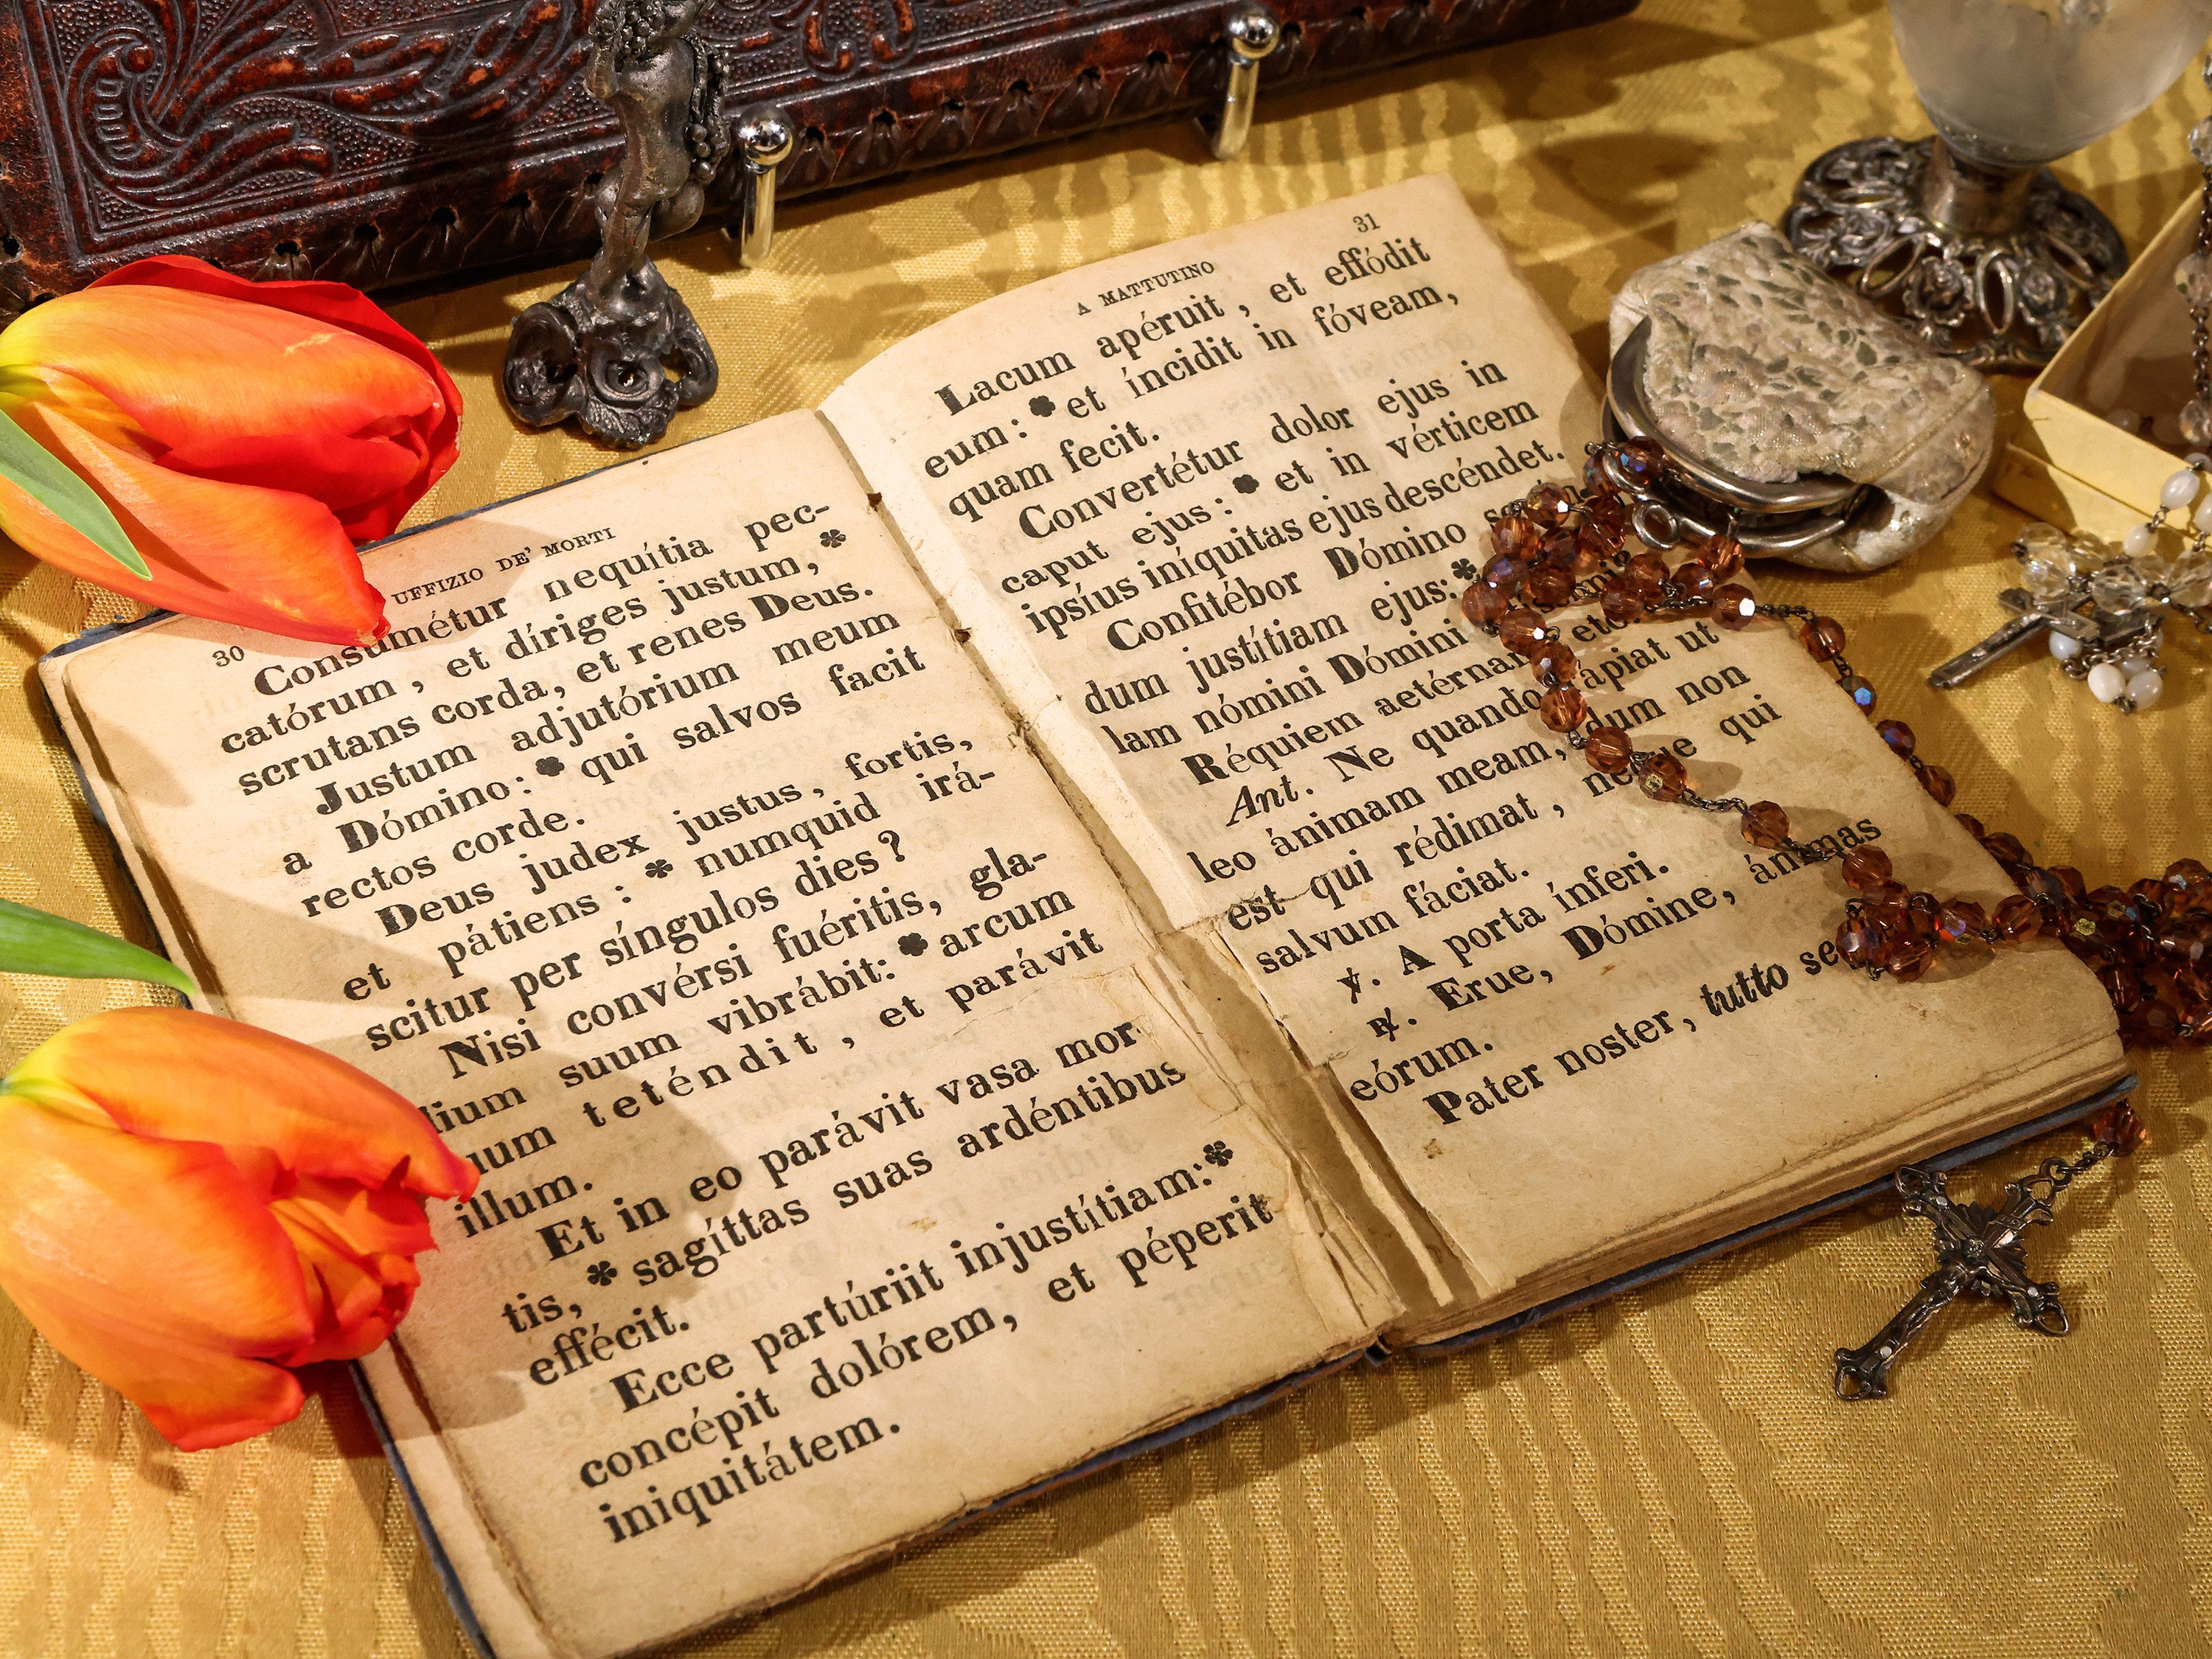 30 UFFIZIO DE' MORTI
Consumétur nequítia pec-
catórum, et díriges justum, ✽
scrutans corda, et renes Deus.
Justum adjutórium meum
a Dómino: ✽ qui salvos facit
rectos corde.
Deus judex justus, fortis,
et pátiens: ✽ numquid irá-
scitur per síngulos dies?
Nisi convérsi fuéritis, gla-
dium suum vibrábit: ✽ arcum
suum teténdit, et parávit
illum.
Et in eo parávit vasa mor-
tis, ✽ sagíttas suas ardéntibus
effécit.
Ecce partúriit injustítiam: ✽
concépit dolórem, et péperit
iniquitátem.
A MATTUTINO 31
Lacum apéruit, et effódit
eum: ✽ et íncidit in fóveam,
quam fecit.
Convertétur dolor ejus in
caput ejus: ✽ et in vérticem
ipsíus iníquitas ejus descéndet.
Confitébor Dómino
dum justítiam ejus: ✽
lam nómini Dómini
Réquiem aetérnam etc.
Ant. Ne quando rápiat ut
leo ánimam meam, dum non
est qui rédimat, neque qui
salvum fáciat.
℣. A porta ínferi.
℟. Erue, Dómine, ánimas
eórum.
Pater noster, tutto